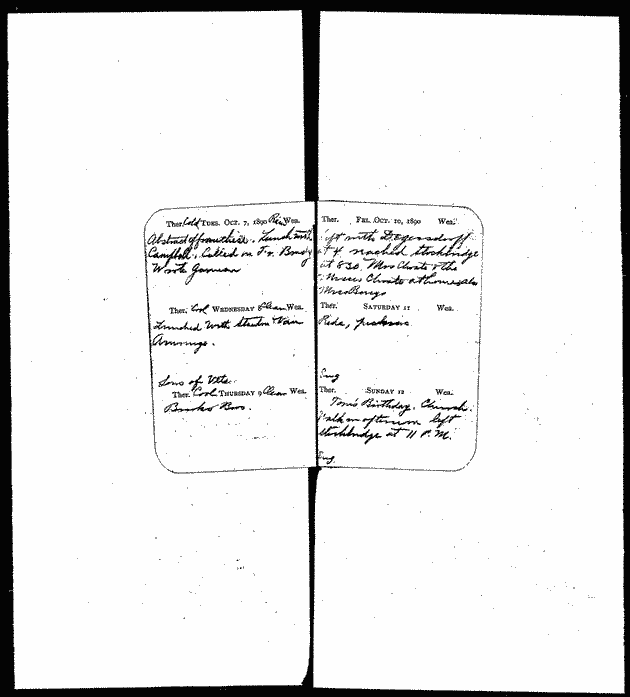 Ther. Cold TUES. OCT. 7, 1890 Rain Wea.
Abstract of franchise. Lunch with
Campbell. Called on
Wrote
Ther. Cool WEDNESDAY 8 Clear Wea.
Lunched with
Sons of Vets.
Ther. Cool THURSDAY 9 Clear Wea.
Ther. FRI. OCT. 10, 1890 Wea.
left with Degersdorff
at 4 reached Stockbridge
at 8 30. Mrs Choate & the
Misses Choate at home also
Miss
Ther. SATURDAY 11 Wea.
Ride, picknic
Ther. SUNDAY 12 Wea.
Tom's Birthday. Church.
Walk in afternoon left
Stockbridge at 11 P.M.